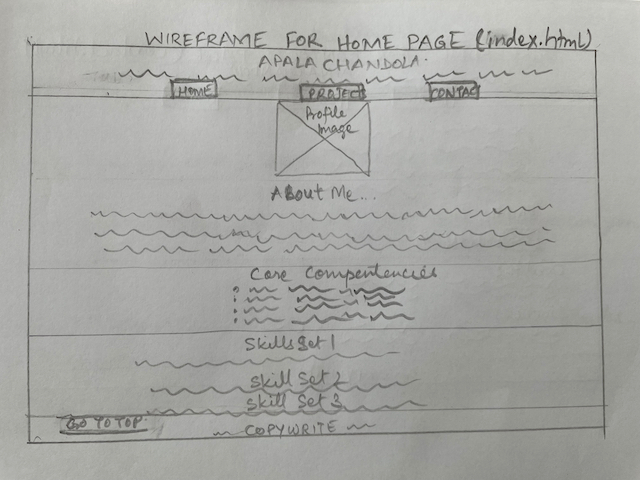 WIREFRAME FOR HOME PAGE (index.html)
APALA CHANDOLA.
HOME PROJECT CONTAC
Profile
Image
About Me...
Core Compentencies
Skills Set 1
Skill Set 2
Skill Set 3
GO TO TOP
COPYWRITE